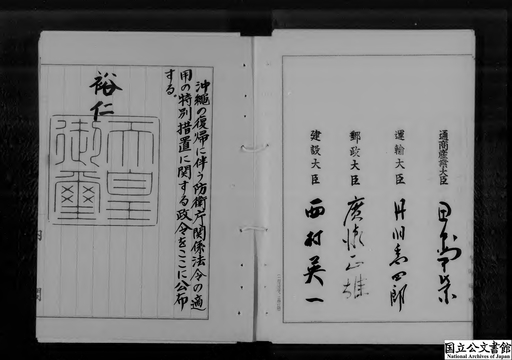 通商産業大臣 田中角榮
運輸大臣 丹羽喬四郎
郵政大臣 廣瀬正雄
建設大臣 西村英一
沖繩の復帰に伴う防衛庁関係法令の適
用の特別措置に関する政令をここに公布
する。
裕仁
天皇
御璽
内閣
国立公文書館
National Archives of Japan